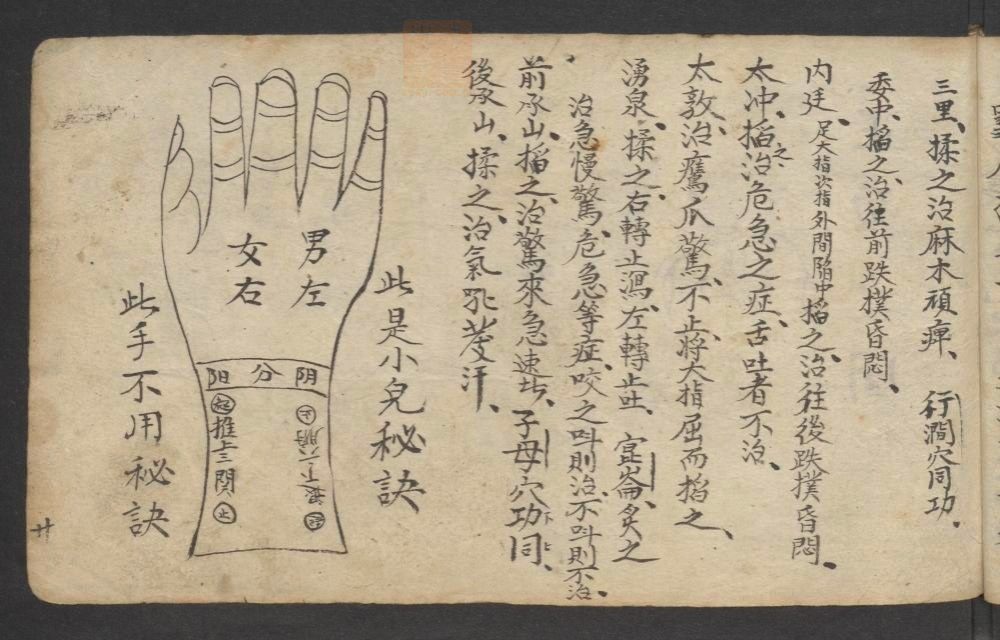 三里、揉之治麻木頑痺、 行澗穴同功、
委中、搯之、治往前跌撲昏悶、
内廷、足大指次指外間陥中搯之、治往後跌撲昏悶、
太冲、搯之治危急之症、舌吐者不治、
太敦、治鷹爪驚、不止、將大指屈而搯之、
湧泉、揉之、右轉止瀉、左轉止吐、 崑崙、灸之
治急慢驚、危急等症、咬之呌則治、不呌則不治、
前承山、搯之、治驚來急速此、子母穴功同、
後承山、揉之、治氣乳發汗、
此是小兒秘訣
男左
女右
阴分阳
起推上三関止
止 六腑
此手不用秘訣
廿